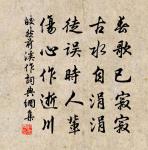 春歌已寂寂
古水自涓涓
徒誤時人輩
傷心作逝川
皎然前溪作詞典網集